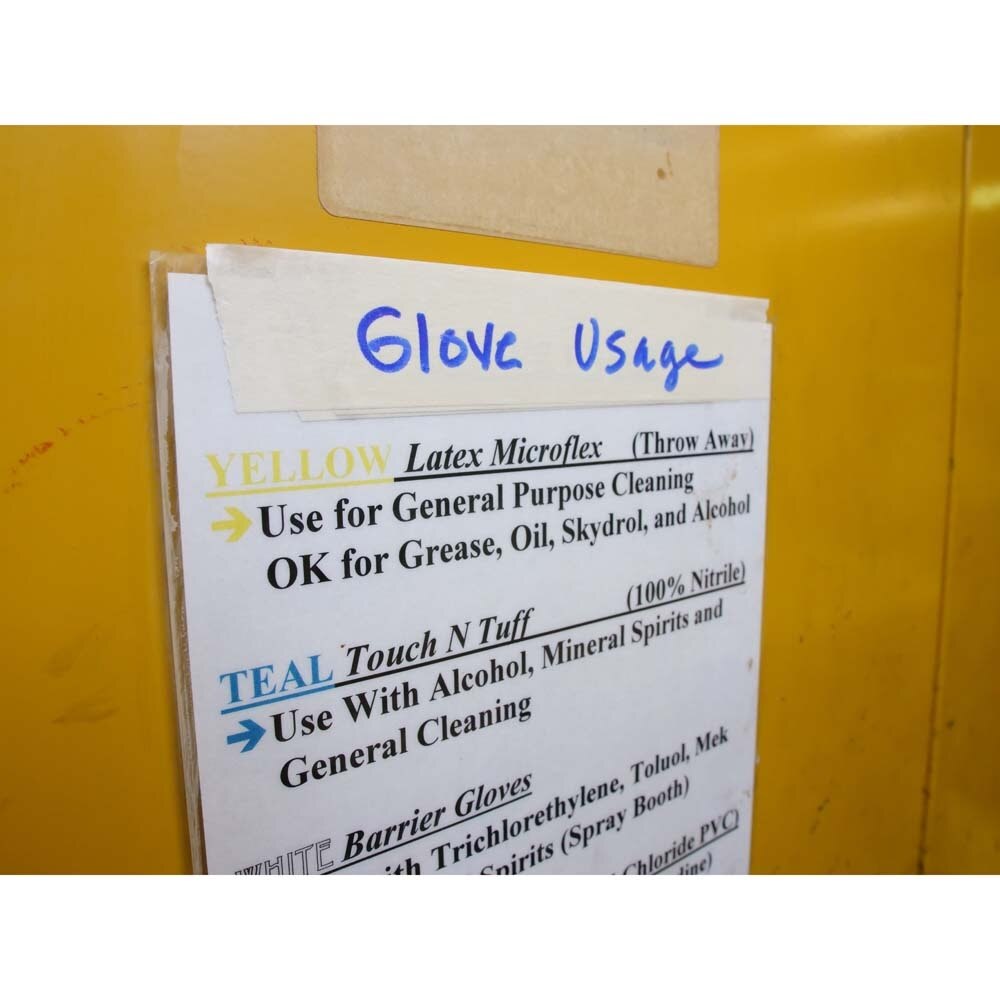 Glove Usage
YELLOW Latex Microflex (Throw Away)
→ Use for General Purpose Cleaning
OK for Grease, Oil, Skydrol, and Alcohol
TEAL Touch N Tuff (100% Nitrile)
→ Use With Alcohol, Mineral Spirits and
General Cleaning
WHITE Barrier Gloves
Trichlorethylene, Toluol, Mek
Spirits (Spray Booth)
Chloride PVC)